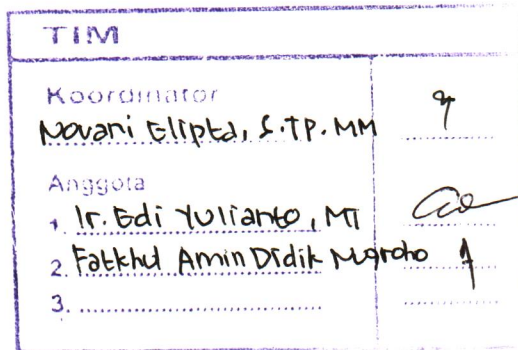 TIM
Koordinator
Novani Elipta, S.TP. MM
Anggota
1. Ir. Edi Yulianto, MT
2. Fatkhul Amin Didik Nugroho
3. ..............................